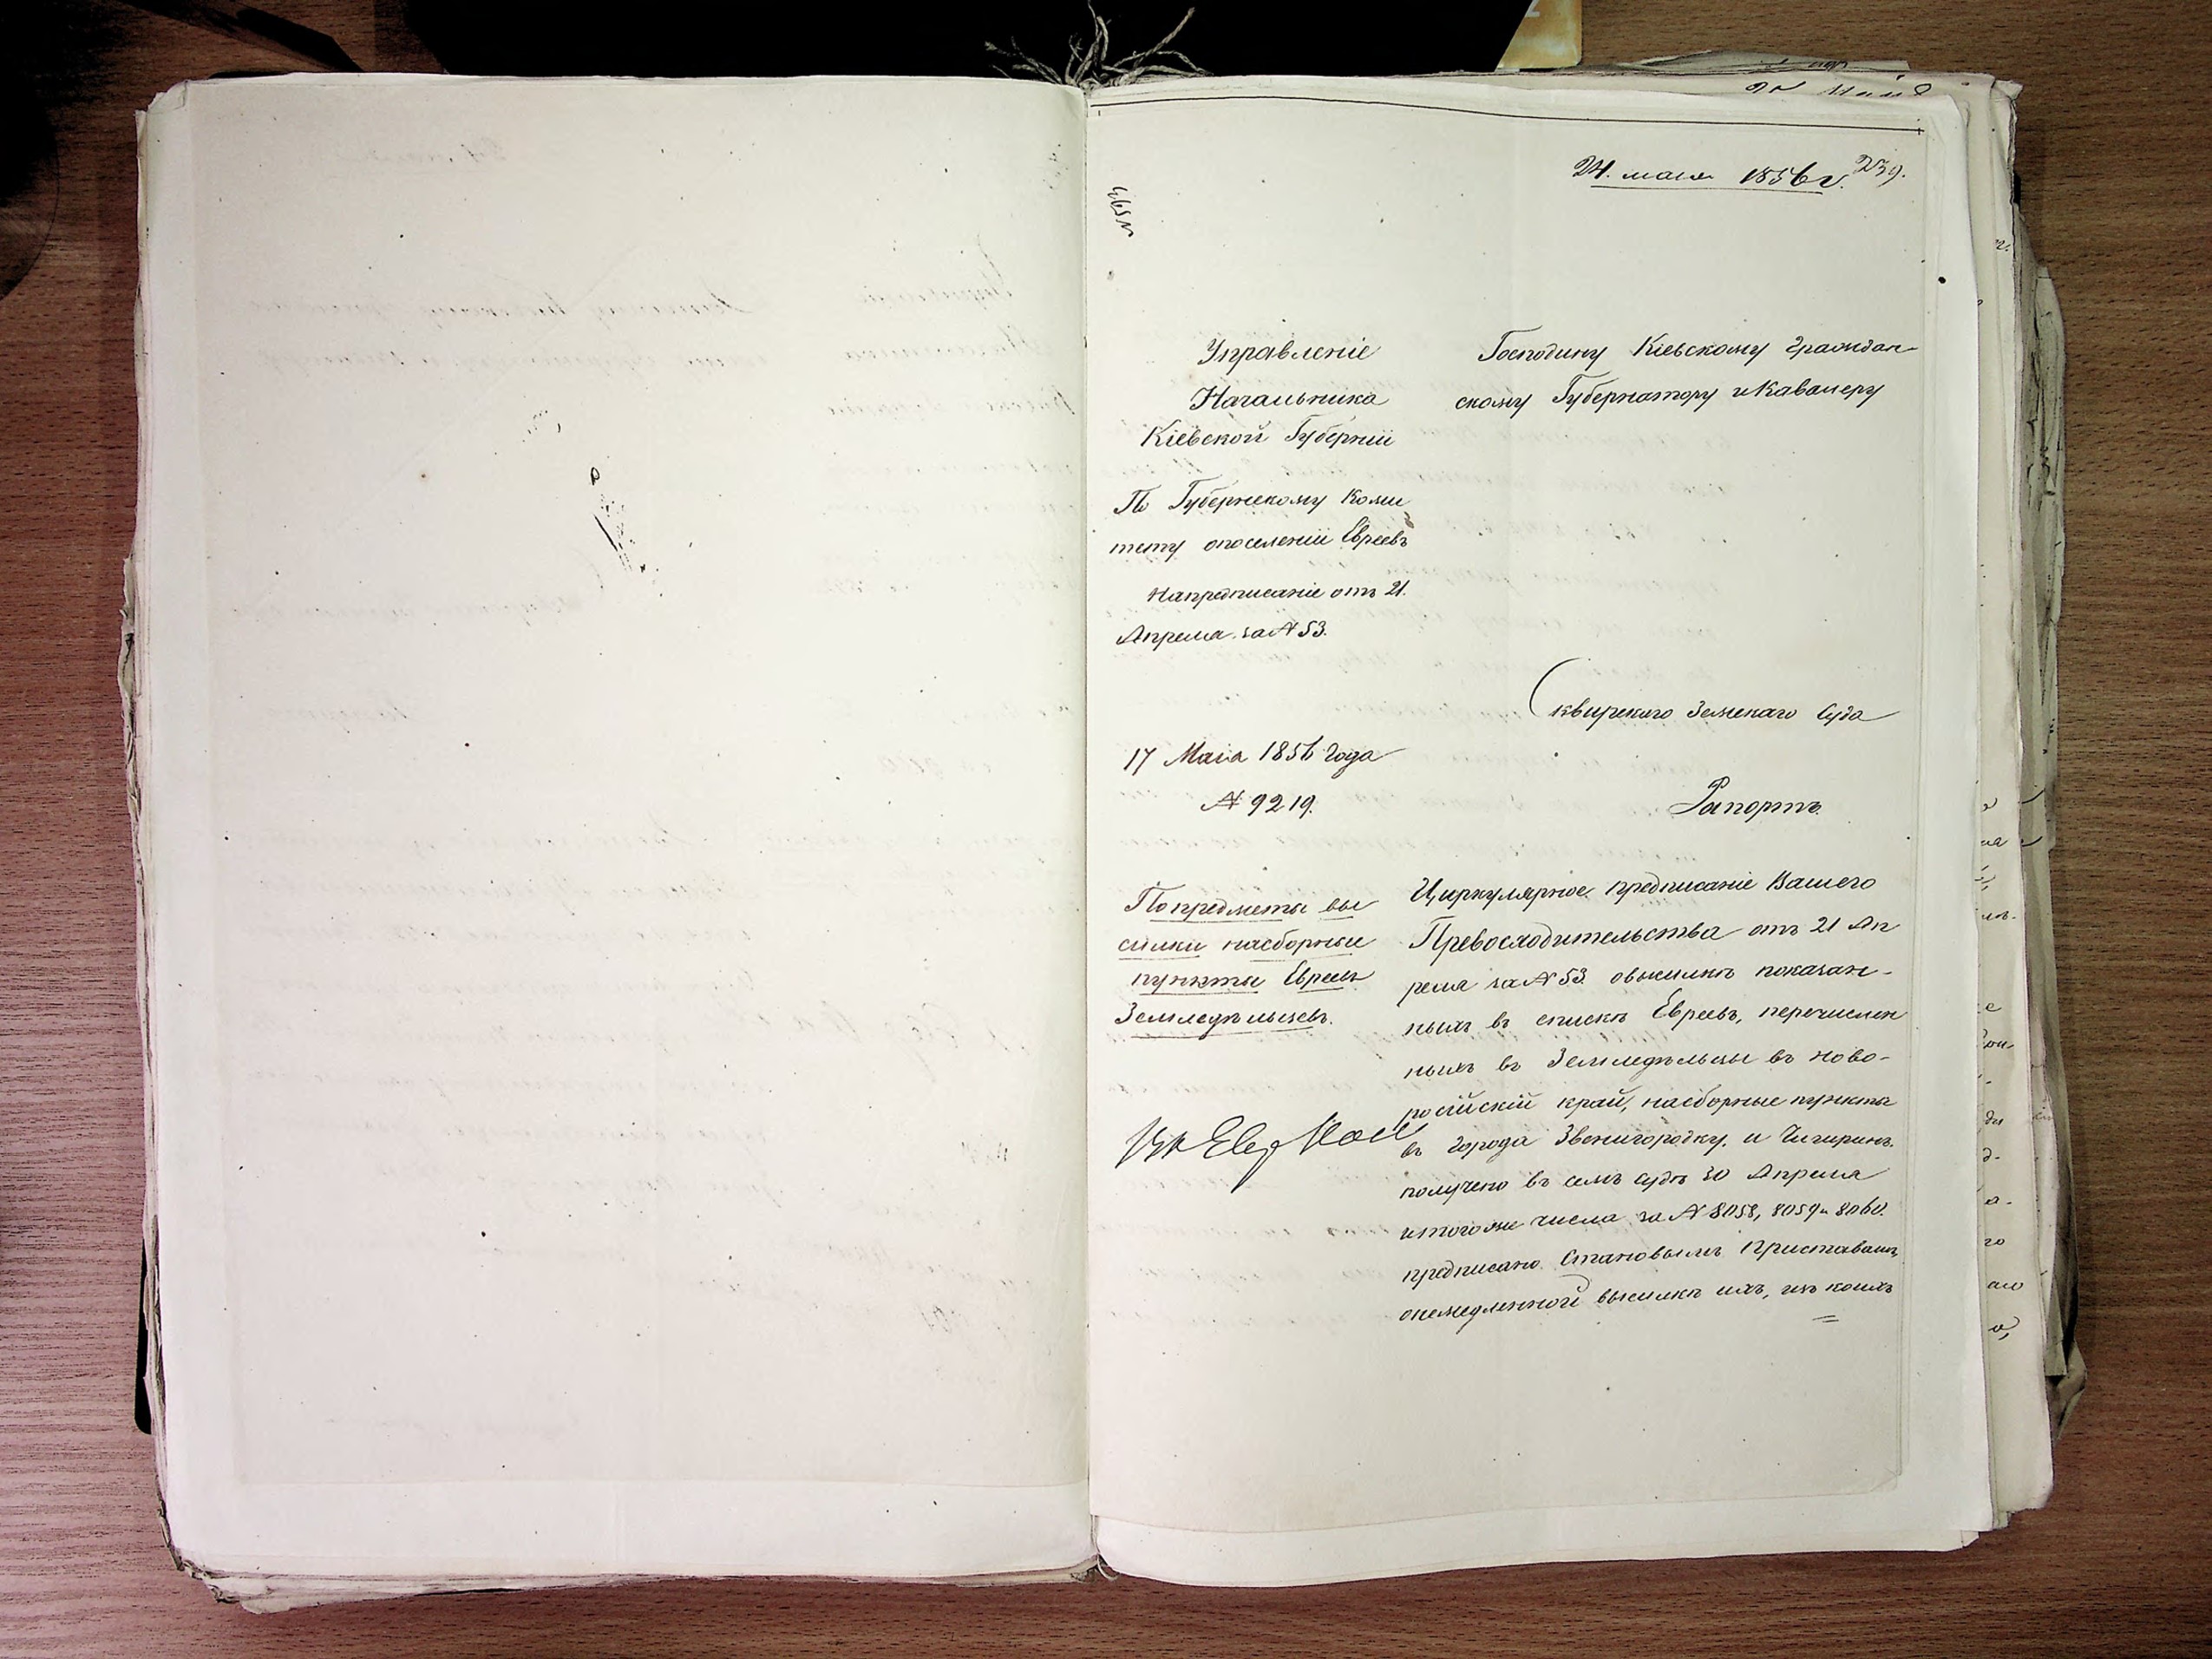 24. мая 1856 г. 239.
Управленіе
Начальника
Кіевской Губерніи
По Губернскому Коми
тету опоселеніи Евреевъ
Напредписаніе отъ 21.
Апреля за № 53.
17 Маіа 1856 года
№ 9219.
По предмету вы
сылки насборные
пункты Евреевъ
Земледѣльцевъ.
Господину Кіевскому Граждан-
скому Губернатору и Кавалеру
Сквирскаго Земскаго Суда
Рапортъ.
Циркулярное предписаніе Вашего
Превосходительства отъ 21 Ап
реля за № 53 овысылкѣ показан-
ныхъ въ спискѣ Евреевъ, перечислен
ныхъ въ Земледѣльцы въ Ново-
россійскій край, насборные пункты
въ города Звенигородку и Чигиринъ.
получено въ семъ судѣ 30 Апреля
итогоже числа за № 8058, 8059 и 8060.
предписано Становымъ Приставамъ,
онемедленной высылкѣ ихъ, изъ коихъ